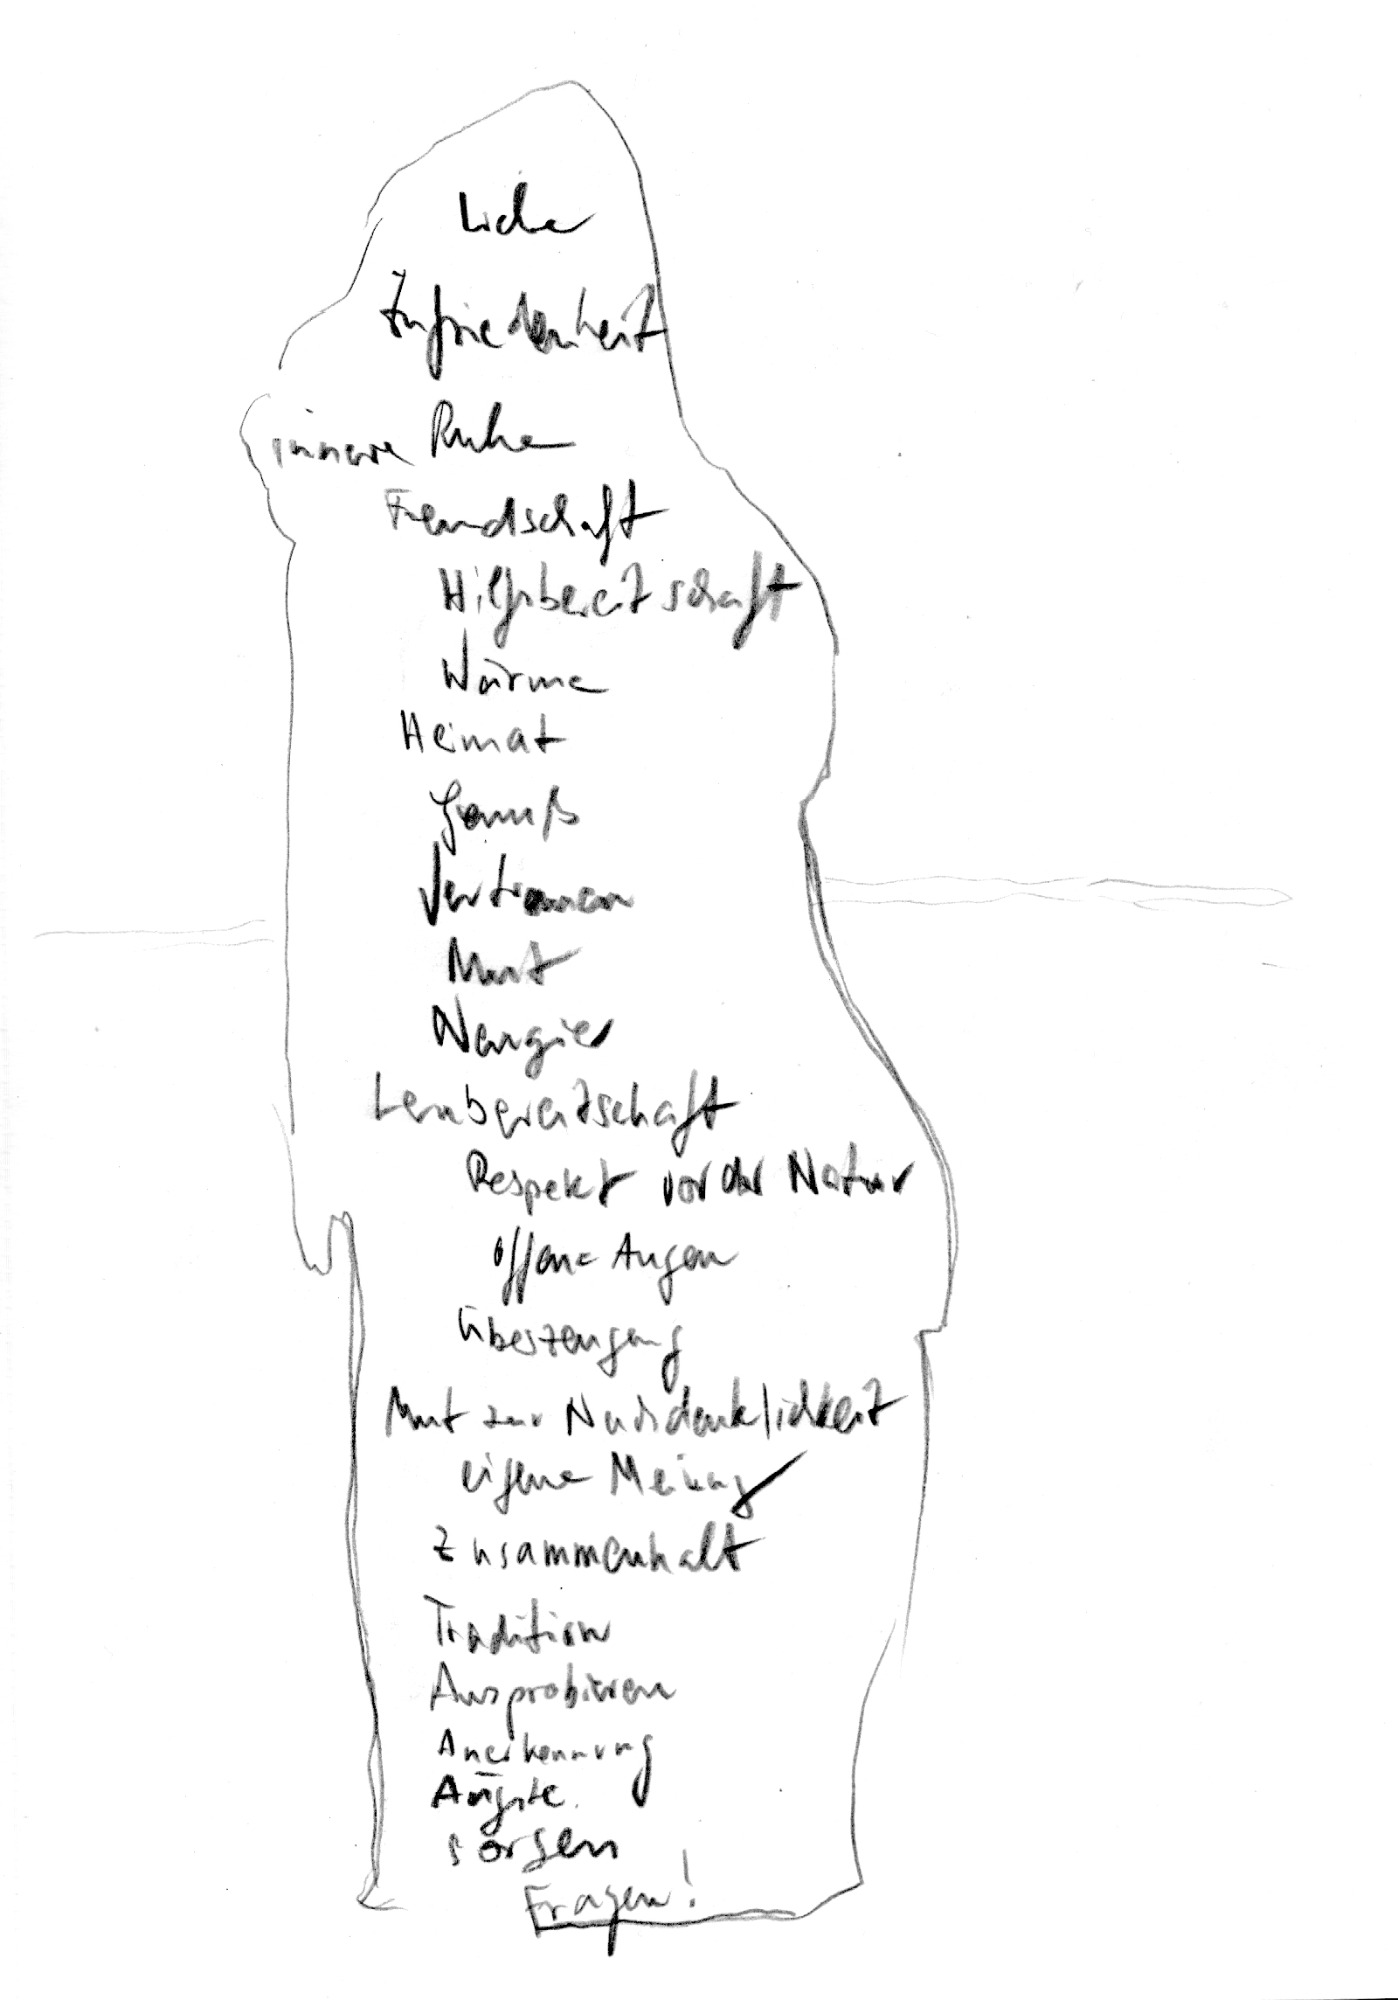 Liebe
Zufriedenheit
innere Ruhe
Freundschaft
Hilfsbereitschaft
Wärme
Heimat
Genuß
Vertrauen
Mut
Neugier
Lernbereitschaft
Respekt vor der Natur
offene Augen
Überzeugung
Mut zur Nachdenklichkeit
eigene Meinung
Zusammenhalt
Tradition
Ausprobieren
Anerkennung
Ängste
Sorgen
Fragen!